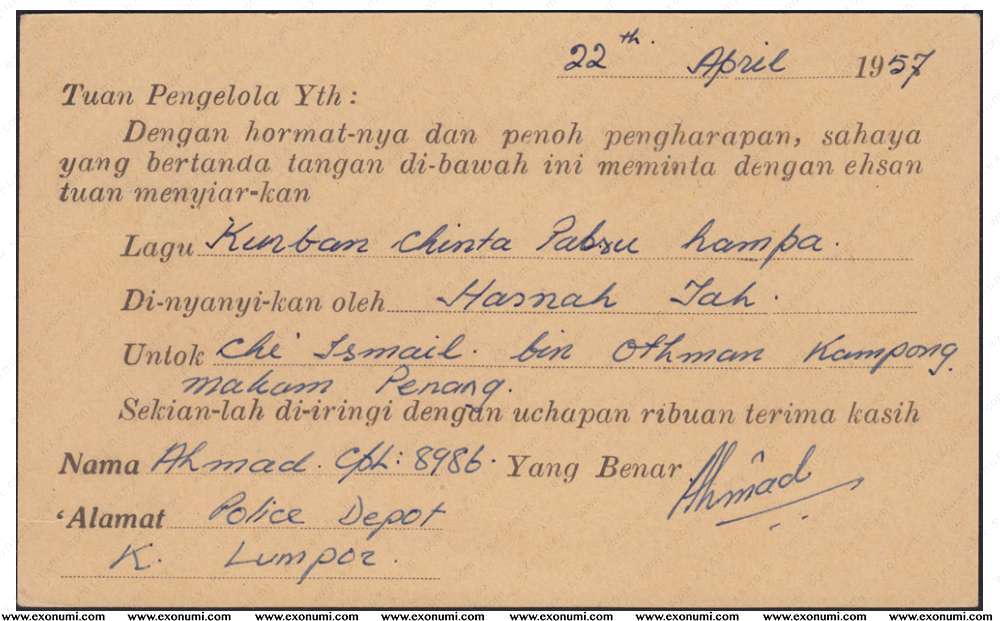 22th. April 1957
Tuan Pengelola Yth :
Dengan hormat-nya dan penoh pengharapan, sahaya
yang bertanda tangan di-bawah ini meminta dengan ehsan
tuan menyiar-kan
Lagu Kurban Chinta Palsu hampa.
Di-nyanyi-kan oleh Hasnah Tah.
Untok Che' Ismail. bin Othman Kampong
makam Penang.
Sekian-lah di-iringi dengan uchapan ribuan terima kasih
Nama Ahmad. Cpl: 8986. Yang Benar Ahmad
'Alamat Police Depot
K. Lumpor.
www.exonumi.com www.exonumi.com www.exonumi.com www.exonumi.com www.exonumi.com www.exonumi.com www.exonumi.com www.exonumi.com